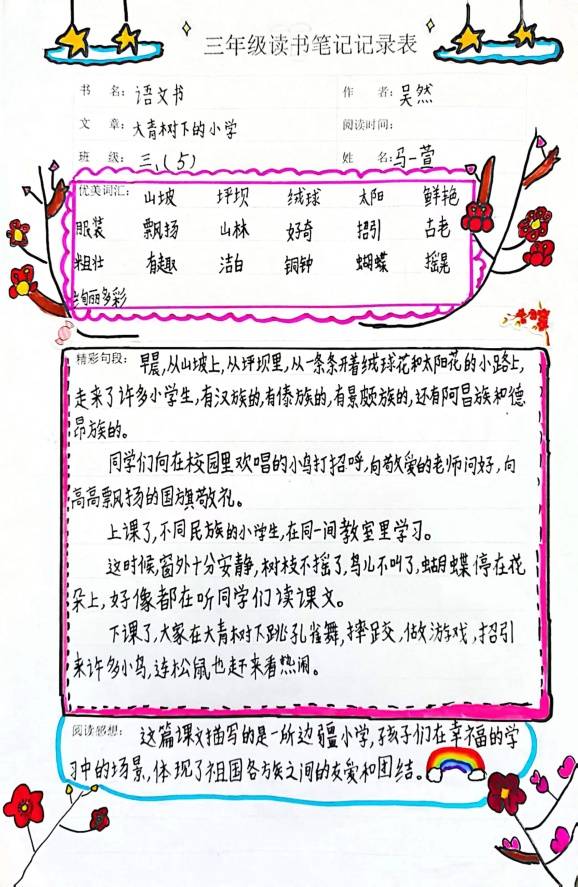 三年级读书笔记记录表
书 名：语文书 作 者：吴然
文 章：大青树下的小学 阅读时间：
班 级：三、(5) 姓 名：马一萱
优美词汇： 山坡 坪坝 绒球 太阳 鲜艳
服装 飘扬 山林 好奇 招引 古老
粗壮 有趣 洁白 铜钟 蝴蝶 摇晃
绚丽多彩
精彩句段： 早晨,从山坡上,从坪坝里,从一条条开着绒球花和太阳花的小路上,
走来了许多小学生,有汉族的,有傣族的,有景颇族的,还有阿昌族和德
昂族的。
同学们向在校园里欢唱的小鸟打招呼,向敬爱的老师问好,向
高高飘扬的国旗敬礼。
上课了,不同民族的小学生,在同一间教室里学习。
这时候,窗外十分安静,树枝不摇了,鸟儿不叫了,蝴蝶停在花
朵上,好像都在听同学们读课文。
下课了,大家在大青树下跳孔雀舞,摔跤,做游戏,招引
来许多小鸟,连松鼠也赶来看热闹。
阅读感想： 这篇课文描写的是一所边疆小学,孩子们在幸福的学
习中的场景,体现了祖国各族之间的友爱和团结。